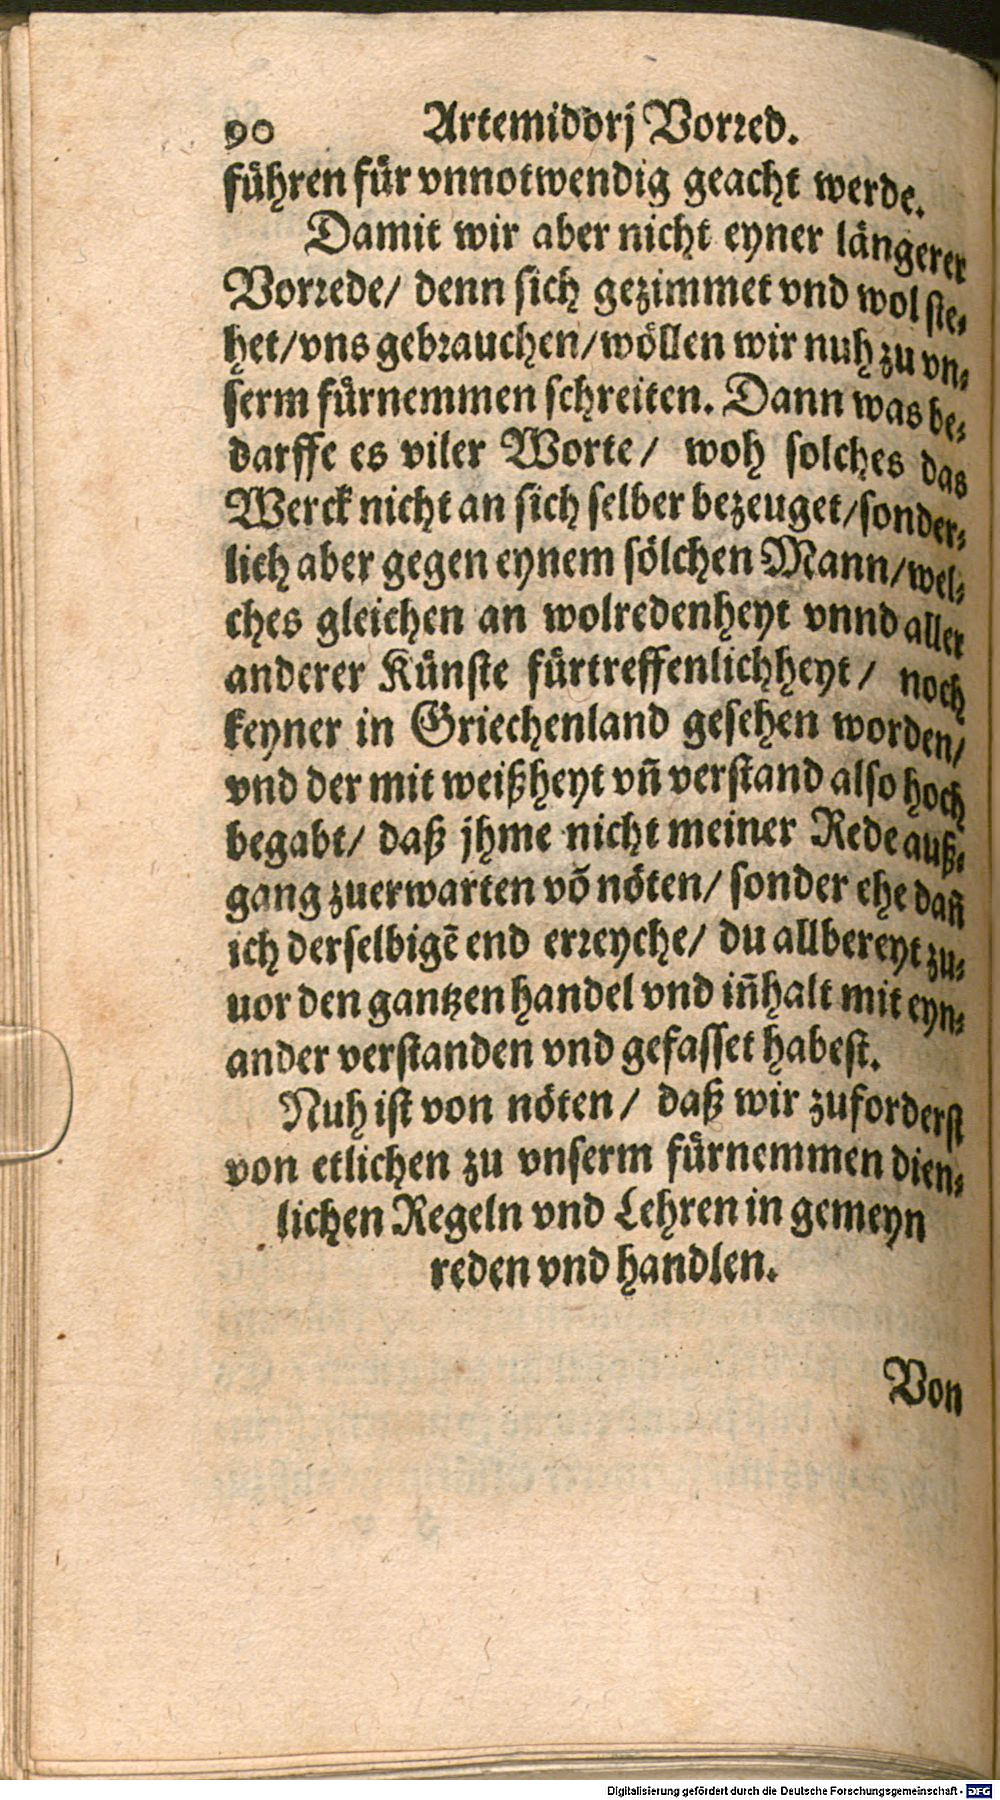 90 Artemidorj Vorred.
führen für vnnotwendig geacht werde.
Damit wir aber nicht eyner längerer
Vorrede/ denn sich gezimmet vnd wol ste⸗
het/vns gebrauchen/wöllen wir nuh zu vn⸗
serm fürnemmen schreiten. Dann was be⸗
darffe es viler Worte/ woh solches das
Werck nicht an sich selber bezeuget/sonder⸗
lich aber gegen eynem sölchen Mann/wel⸗
ches gleichen an wolredenheyt vnnd aller
anderer Künste fürtreffenlichheyt/ noch
keyner in Griechenland gesehen worden/
vnd der mit weißheyt vñ verstand also hoch
begabt/ daß jhme nicht meiner Rede auß⸗
gang zuerwarten võ nöten/ sonder ehe dañ
ich derselbigẽ end erreyche/ du allbereyt zu⸗
uor den gantzen handel vnd iñhalt mit eyn⸗
ander verstanden vnd gefasset habest.
Nuh ist von nöten/ daß wir zuforderst
von etlichen zu vnserm fürnemmen dien⸗
lichen Regeln vnd Lehren in gemeyn
reden vnd handlen.
Von
Digitalisierung gefördert durch die Deutsche Forschungsgemeinschaft - DFG